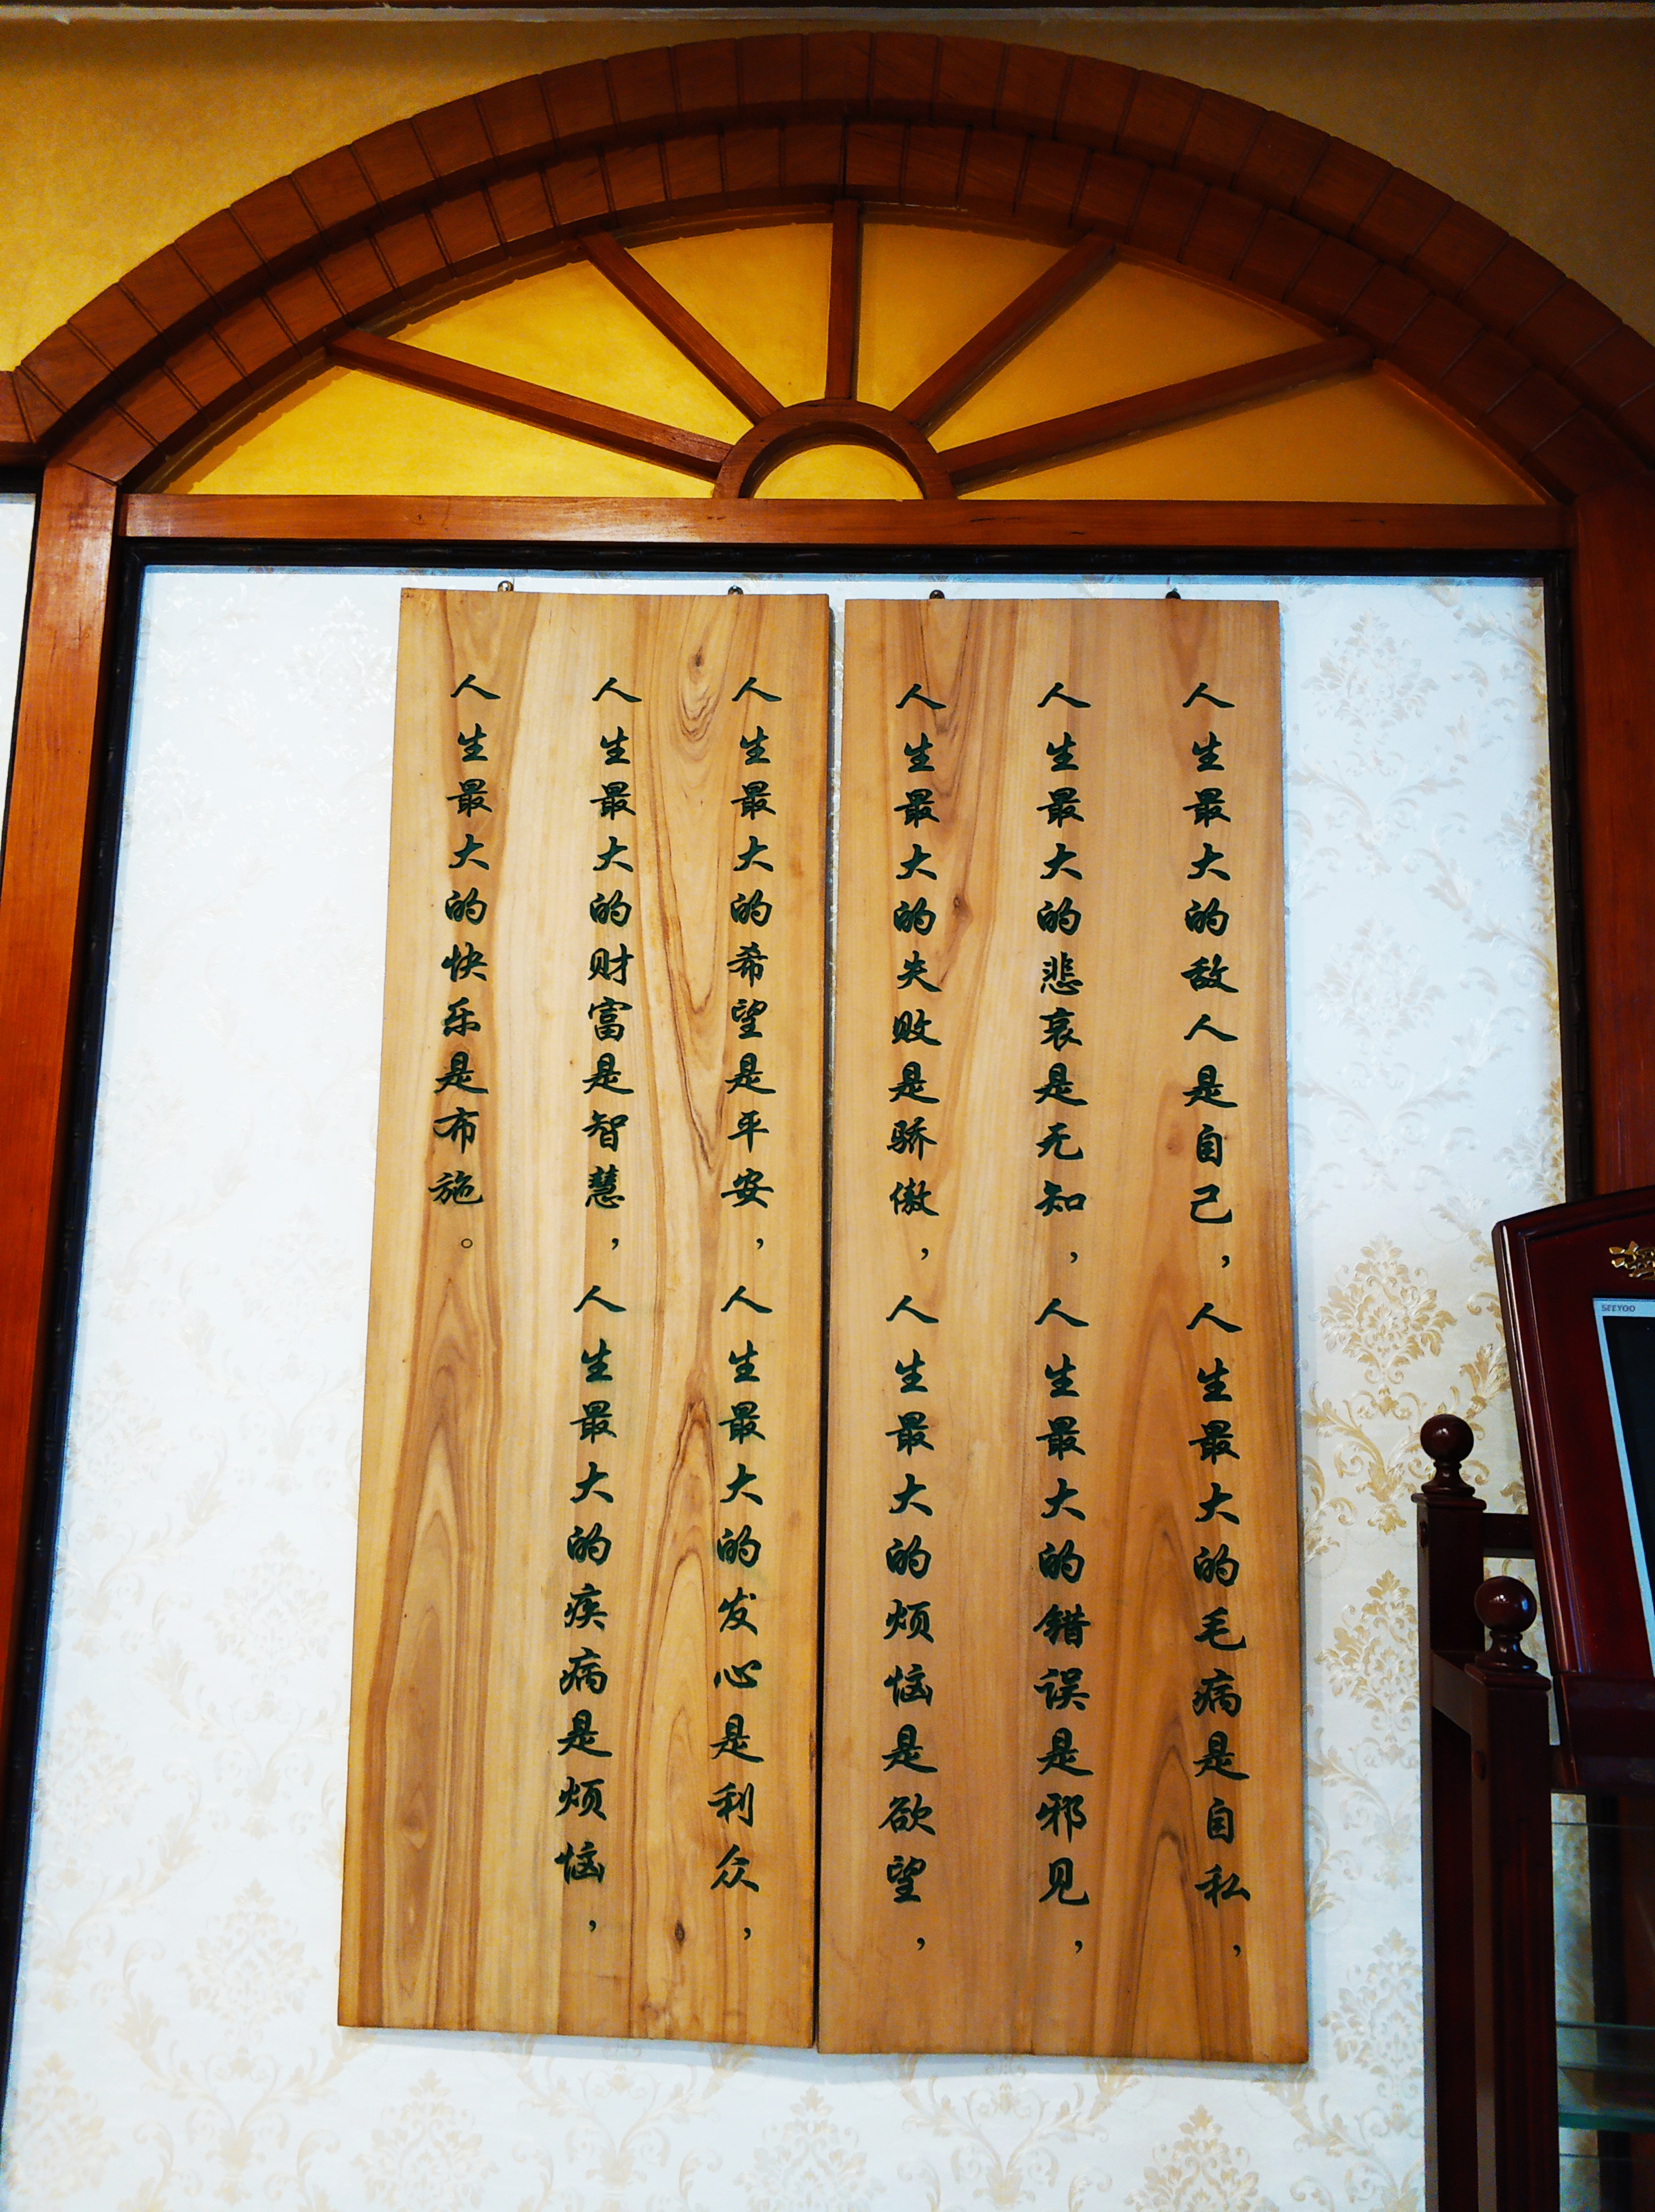 人生最大的敌人是自己，人生最大的毛病是自私，
人生最大的悲哀是无知，人生最大的错误是邪见，
人生最大的失败是骄傲，人生最大的烦恼是欲望，
人生最大的希望是平安，人生最大的发心是利众，
人生最大的财富是智慧，人生最大的疾病是烦恼，
人生最大的快乐是布施。
SEEYOO